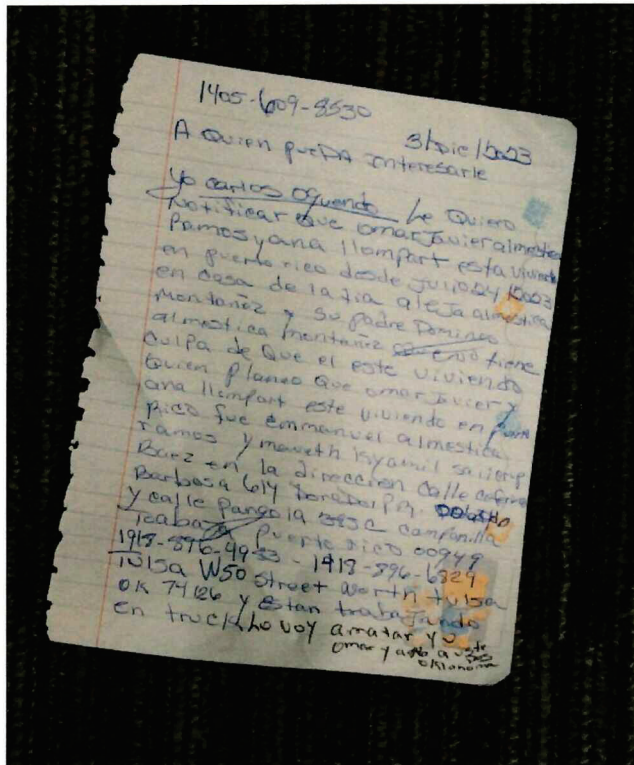 1405-609-8530
31/Dic/2023
A Quien pueDA interesarle
Yo carlos oquendo Le Quiero
Notificar que omar Javier almestica
Ramos y ana llompart esta viviendo
en puerto rico desde Julio 24 2023
en casa de la tia aleja almestica
Montañez y su padre Domingo
almestica montañez tiene
culpa de Que el este viviendo
Quien planeo Que omar Javier y
ana llompart este viviendo en puerto
Rico fue emmanuel almestica
ramos y
Baez en la direccion calle
Barbosa 614 Dorado P.R.
y calle pangola campanilla
Toabaja puerto rico 00949
1918-896-9933 - 1918-896-6829
Tulsa W50 street north tulsa
OK 74126 y estan trabajando
en truck. Lo voy amatar yo
omar y a
oklahoma